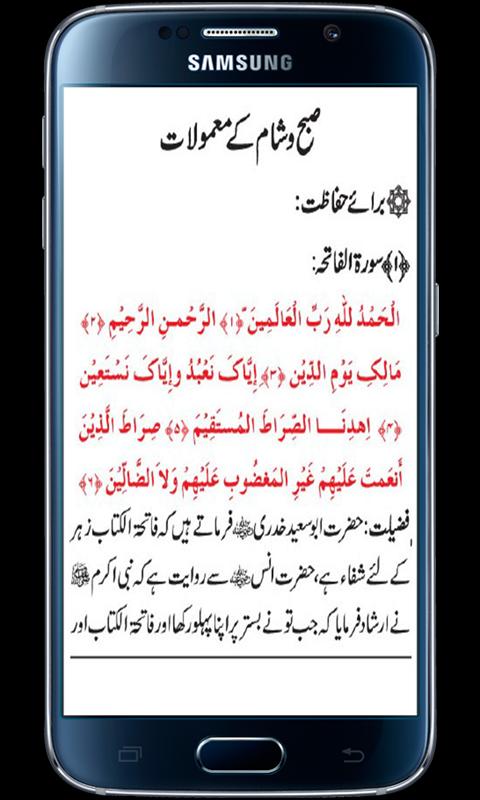 SAMSUNG
صبح و شام کے معمولات
برائے حفاظت:
﴿۱﴾ سورۃ الفاتحہ:
الْحَمْدُ للّٰهِ رَبِّ الْعَالَمِينَ ﴿۱﴾ الرَّحْمـنِ الرَّحِيْمِ ﴿۲﴾
مَالِكِ يَوْمِ الدِّيْنِ ﴿۳﴾ إِيَّاكَ نَعْبُدُ وإِيَّاكَ نَسْتَعِيْنُ
﴿۴﴾ اِهدِنَــــا الصِّرَاطَ المُستَقِيْمَ ﴿۵﴾ صِرَاطَ الَّذِيْنَ
أَنعَمتَ عَلَيْهِمْ غَيْرِ المَغضُوبِ عَلَيْهِمْ وَلاَ الضَّالِّيْنَ ﴿۶﴾
فضیلت: حضرت ابو سعید خدری ؓ فرماتے ہیں کہ فاتحۃ الکتاب زہر
کے لئے شفاء ہے، حضرت انس ؓ سے روایت ہے کہ نبی اکرم ﷺ
نے ارشاد فرمایا کہ جب تو نے بستر پر اپنا پہلو رکھا اور فاتحۃ الکتاب اور